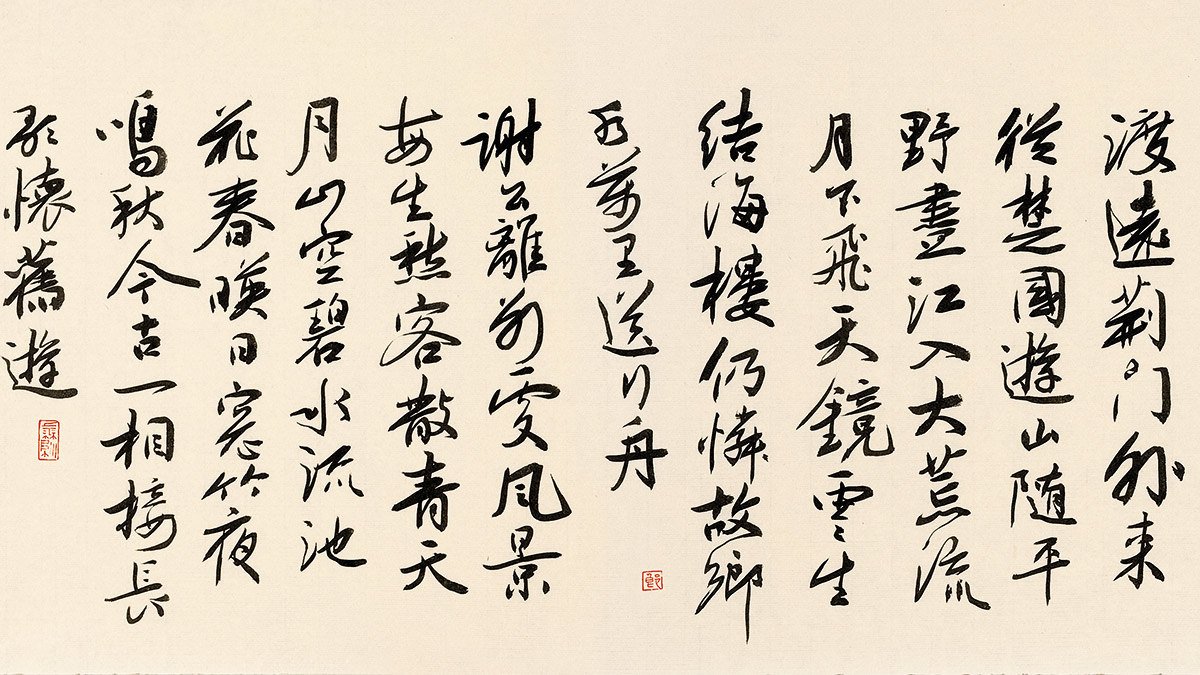 渡遠荆门外来
從楚國遊山随平
野盡江入大荒流
月下飛天鏡雲生
结海樓仍憐故鄉
水萬里送行舟
謝公離别處風景
每生愁客散青天
月山空碧水流池
花春暎日窓竹夜
鳴秋今古一相接長
歌懷舊遊